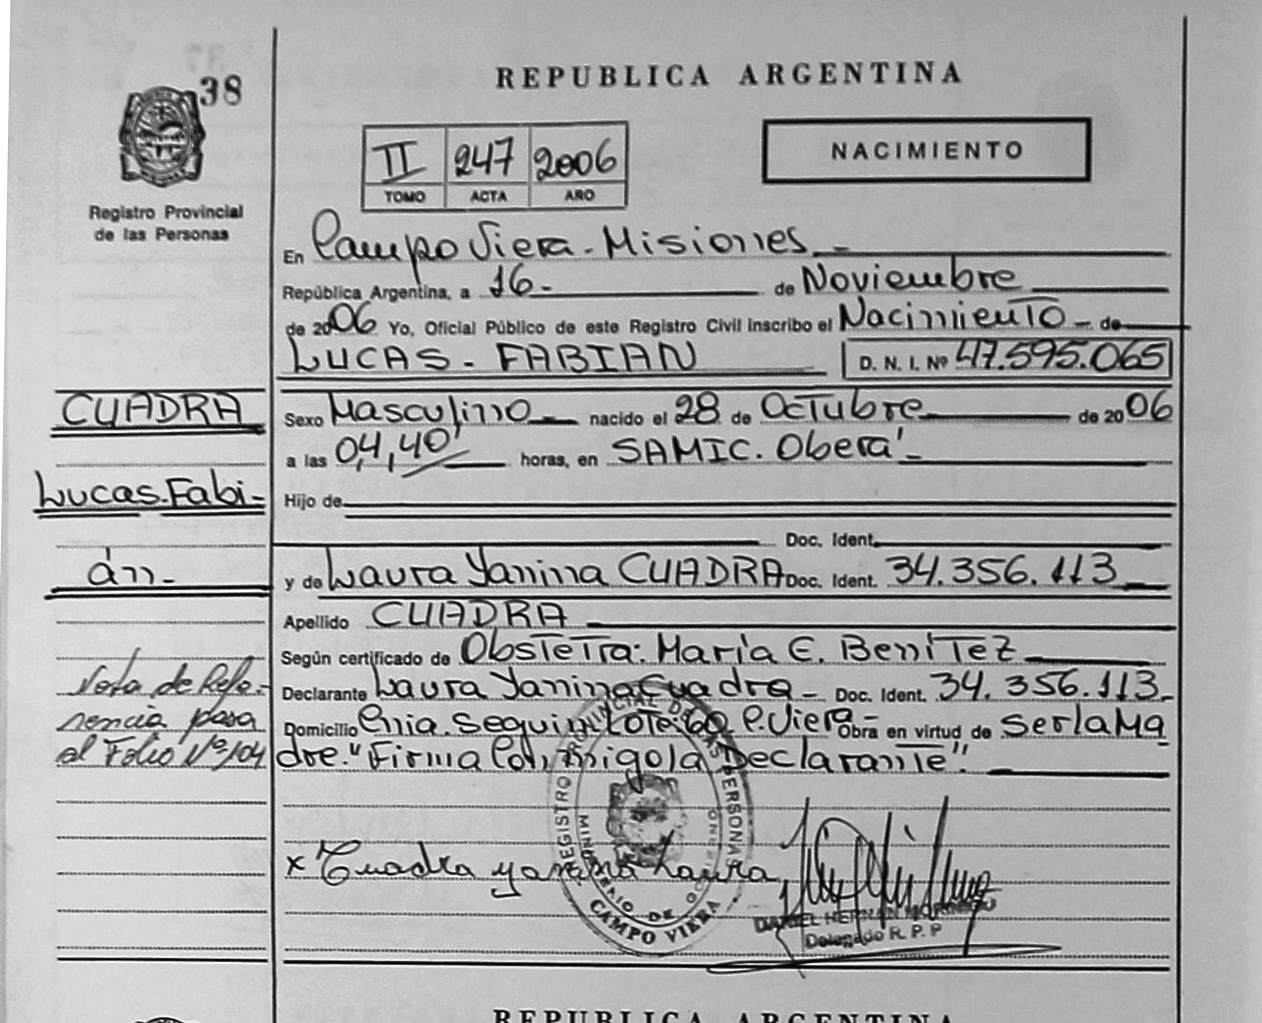 38
REPUBLICA ARGENTINA
II 247 2006
TOMO ACTA AÑO
NACIMIENTO
Registro Provincial
de las Personas
En Campo Viera - Misiones
República Argentina, a 16 - de Noviembre
de 2006 Yo, Oficial Público de este Registro Civil inscribo el Nacimiento - de
LUCAS - FABIAN D. N. I. Nº 47.595.065
CUADRA
Lucas-Fabi-
án-
Sexo Masculino nacido el 28 de Octubre de 2006
a las 04,40' horas, en SAMIC. Oberá -
Hijo de
Doc. Ident.
y de Laura Yanina CUADRA Doc. Ident. 34.356.113
Apellido CUADRA
Según certificado de Obstetra: María E. Benítez
Declarante Laura Yanina Cuadra - Doc. Ident. 34.356.113 -
Domicilio Seguín Lote 60 C. Viera - Obra en virtud de ser la Ma
dre. "Firma Conmigo la Declarante".
Nota de Refe-
rencia pasa
al Folio Nº 104
x Cuadra yanina Laura
REGISTRO PROVINCIAL DE LAS PERSONAS
MINISTERIO DE GOBIERNO
CAMPO VIERA
DANIEL HERNAN
Delegado R. P. P
REPUBLICA ARGENTINA